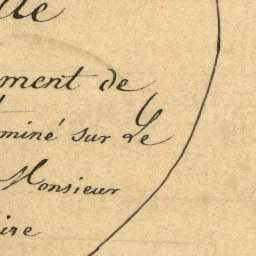 ment de
miné sur Le
Monsieur
ire